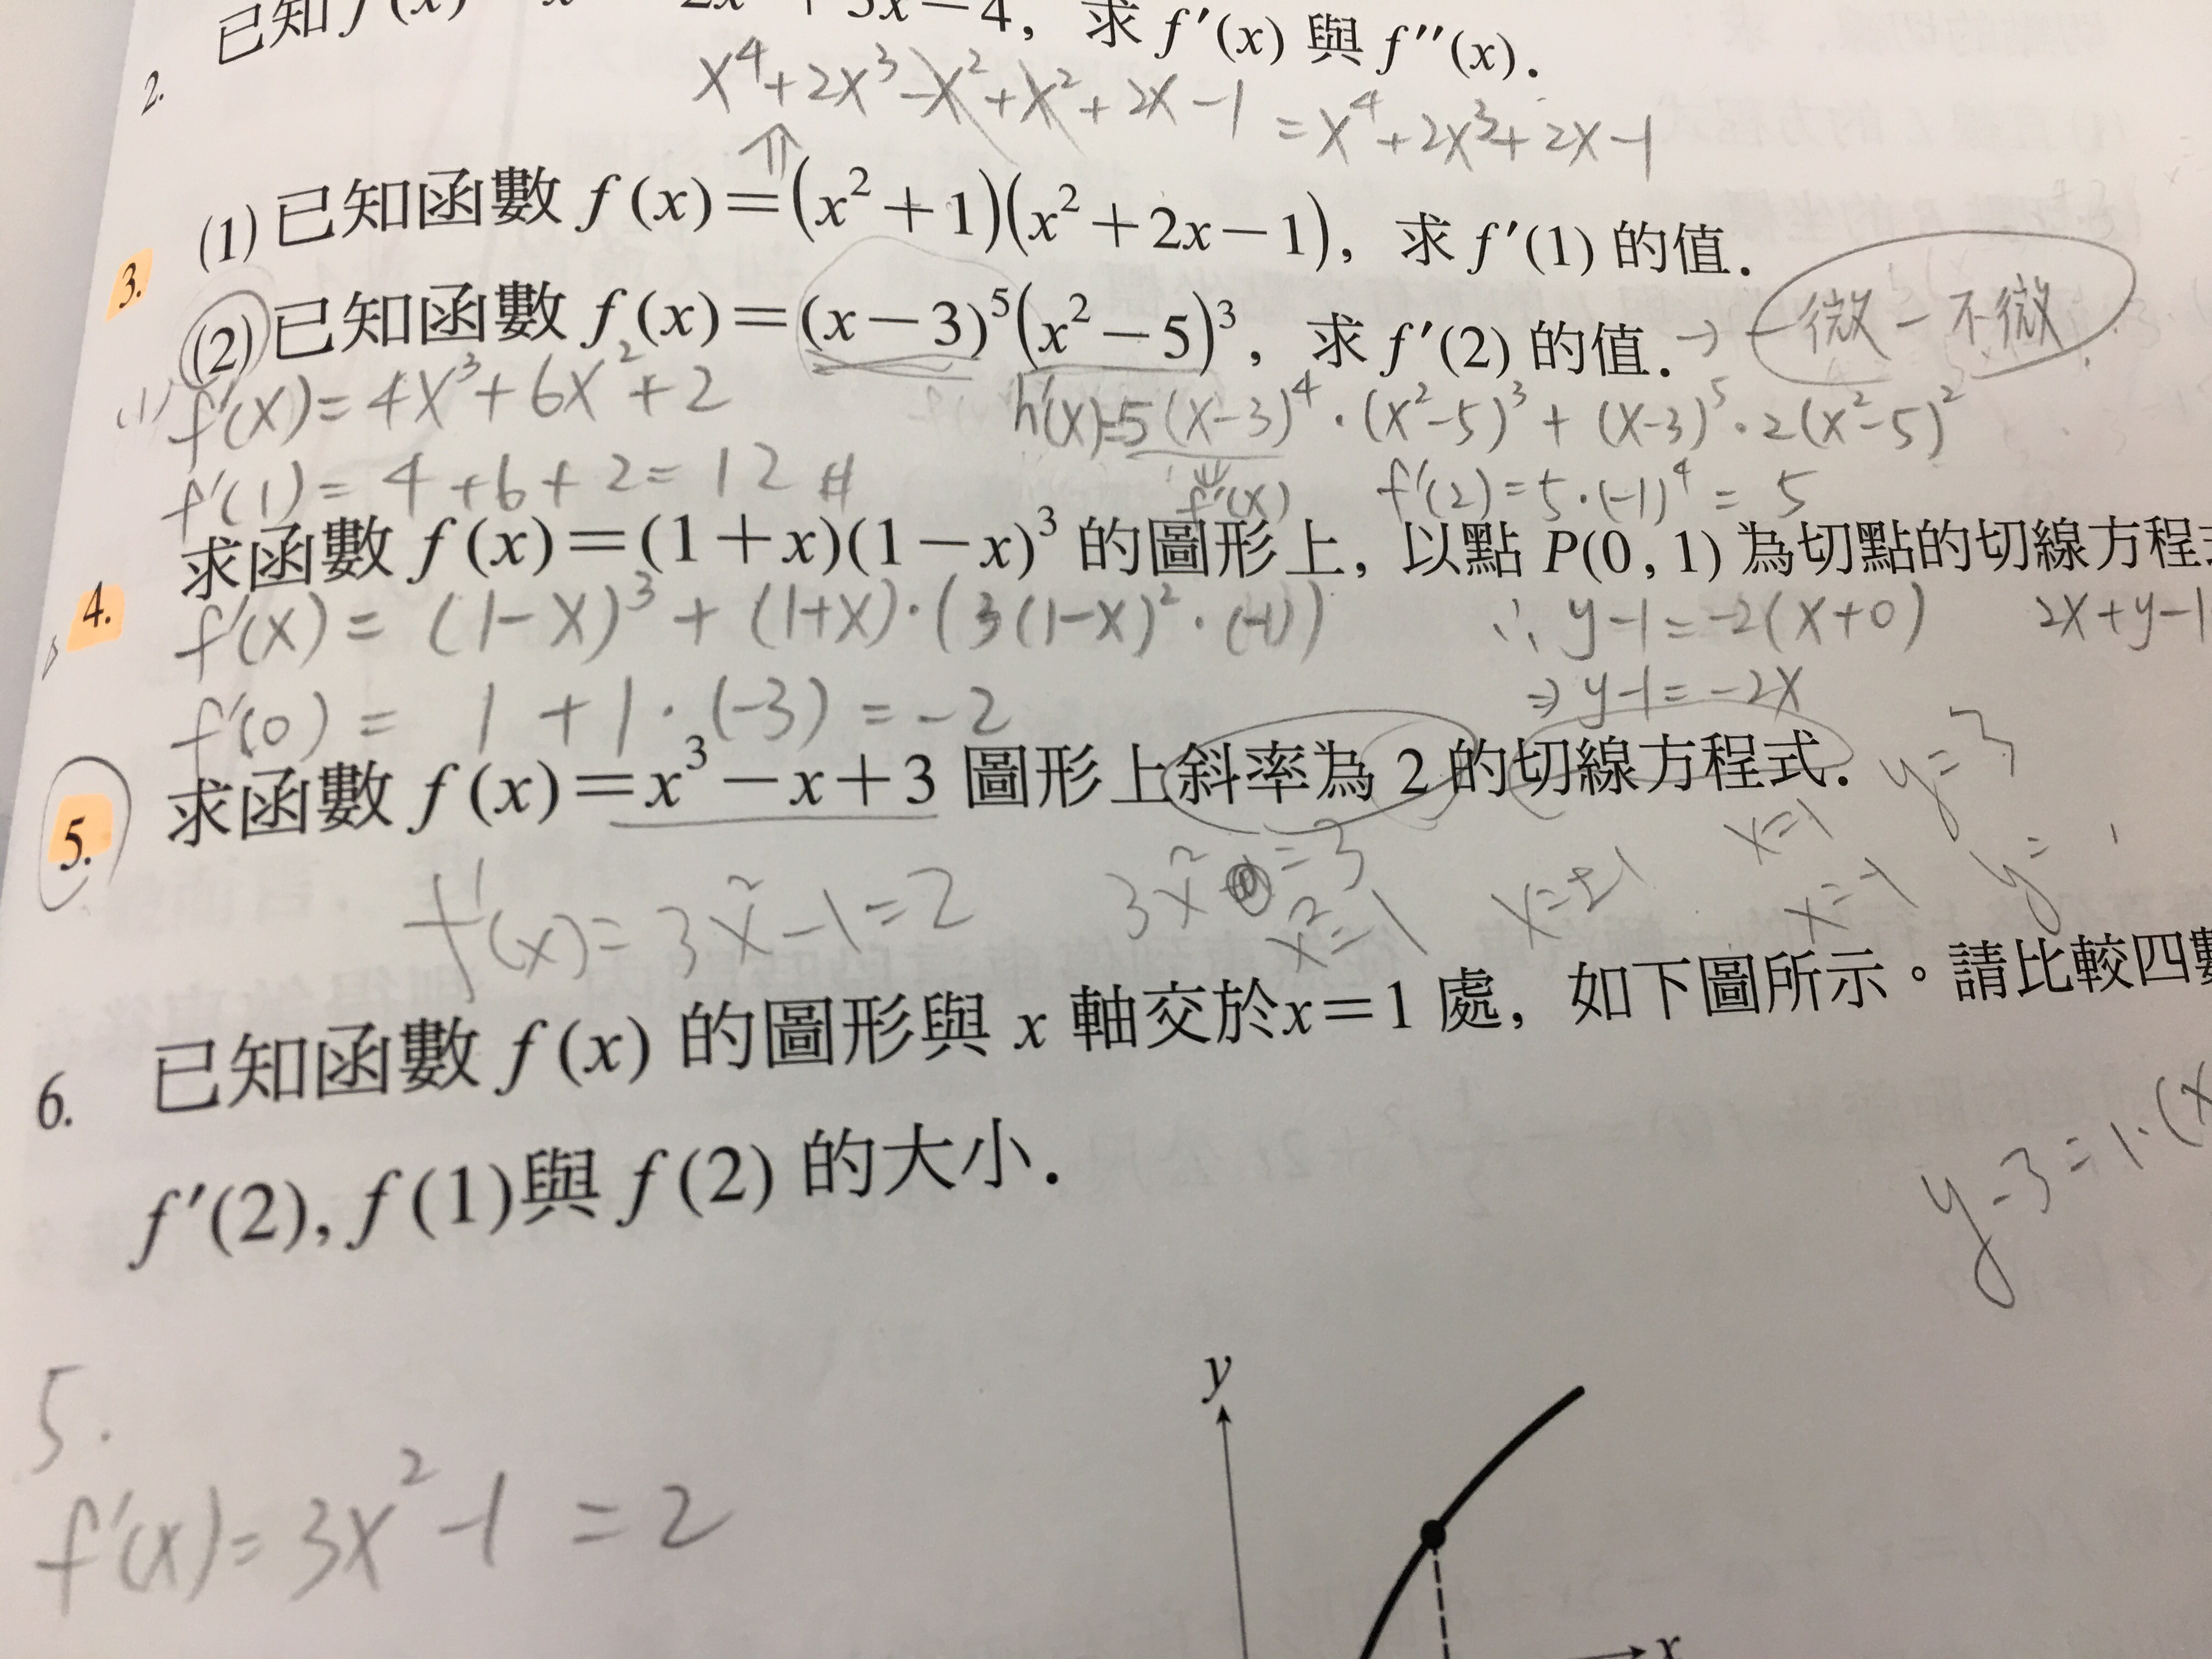 2. 已知 f(x) 3x-4, 求 f'(x) 與 f''(x).
x⁴+2x³-x²+x²+2x-1 =x⁴+2x³+2x-1
3. (1)已知函數 f(x)=(x²+1)(x²+2x-1), 求 f'(1) 的值.
(2)已知函數 f(x)=(x-3)⁵(x²-5)³, 求 f'(2) 的值. → 一微一不微
(1) f'(x)=4x³+6x²+2 h'(x)=5(x-3)⁴·(x²-5)³+(x-3)⁵·2(x²-5)²
f'(1)=4+6+2=12 # f'(x) f'(2)=5·(-1)⁴=5
4. 求函數 f(x)=(1+x)(1-x)³ 的圖形上, 以點 P(0,1) 為切點的切線方程
f'(x)=(1-x)³+(1+x)·(3(1-x)²·(-1)) ∴ y-1=-2(x+0) 2x+y-1
f'(0)= 1+1·(-3)=-2 ⇒ y-1=-2x
5. 求函數 f(x)=x³-x+3 圖形上斜率為 2 的切線方程式. y=3
x=1
f'(x)=3x²-1=2 3x²=3 x²=1 x=±1 x=-1 y=
6. 已知函數 f(x) 的圖形與 x 軸交於x=1 處, 如下圖所示。請比較四
f'(2), f(1)與 f(2) 的大小.
y-3=1·(x
5.
f'(x)=3x²-1=2
y
x